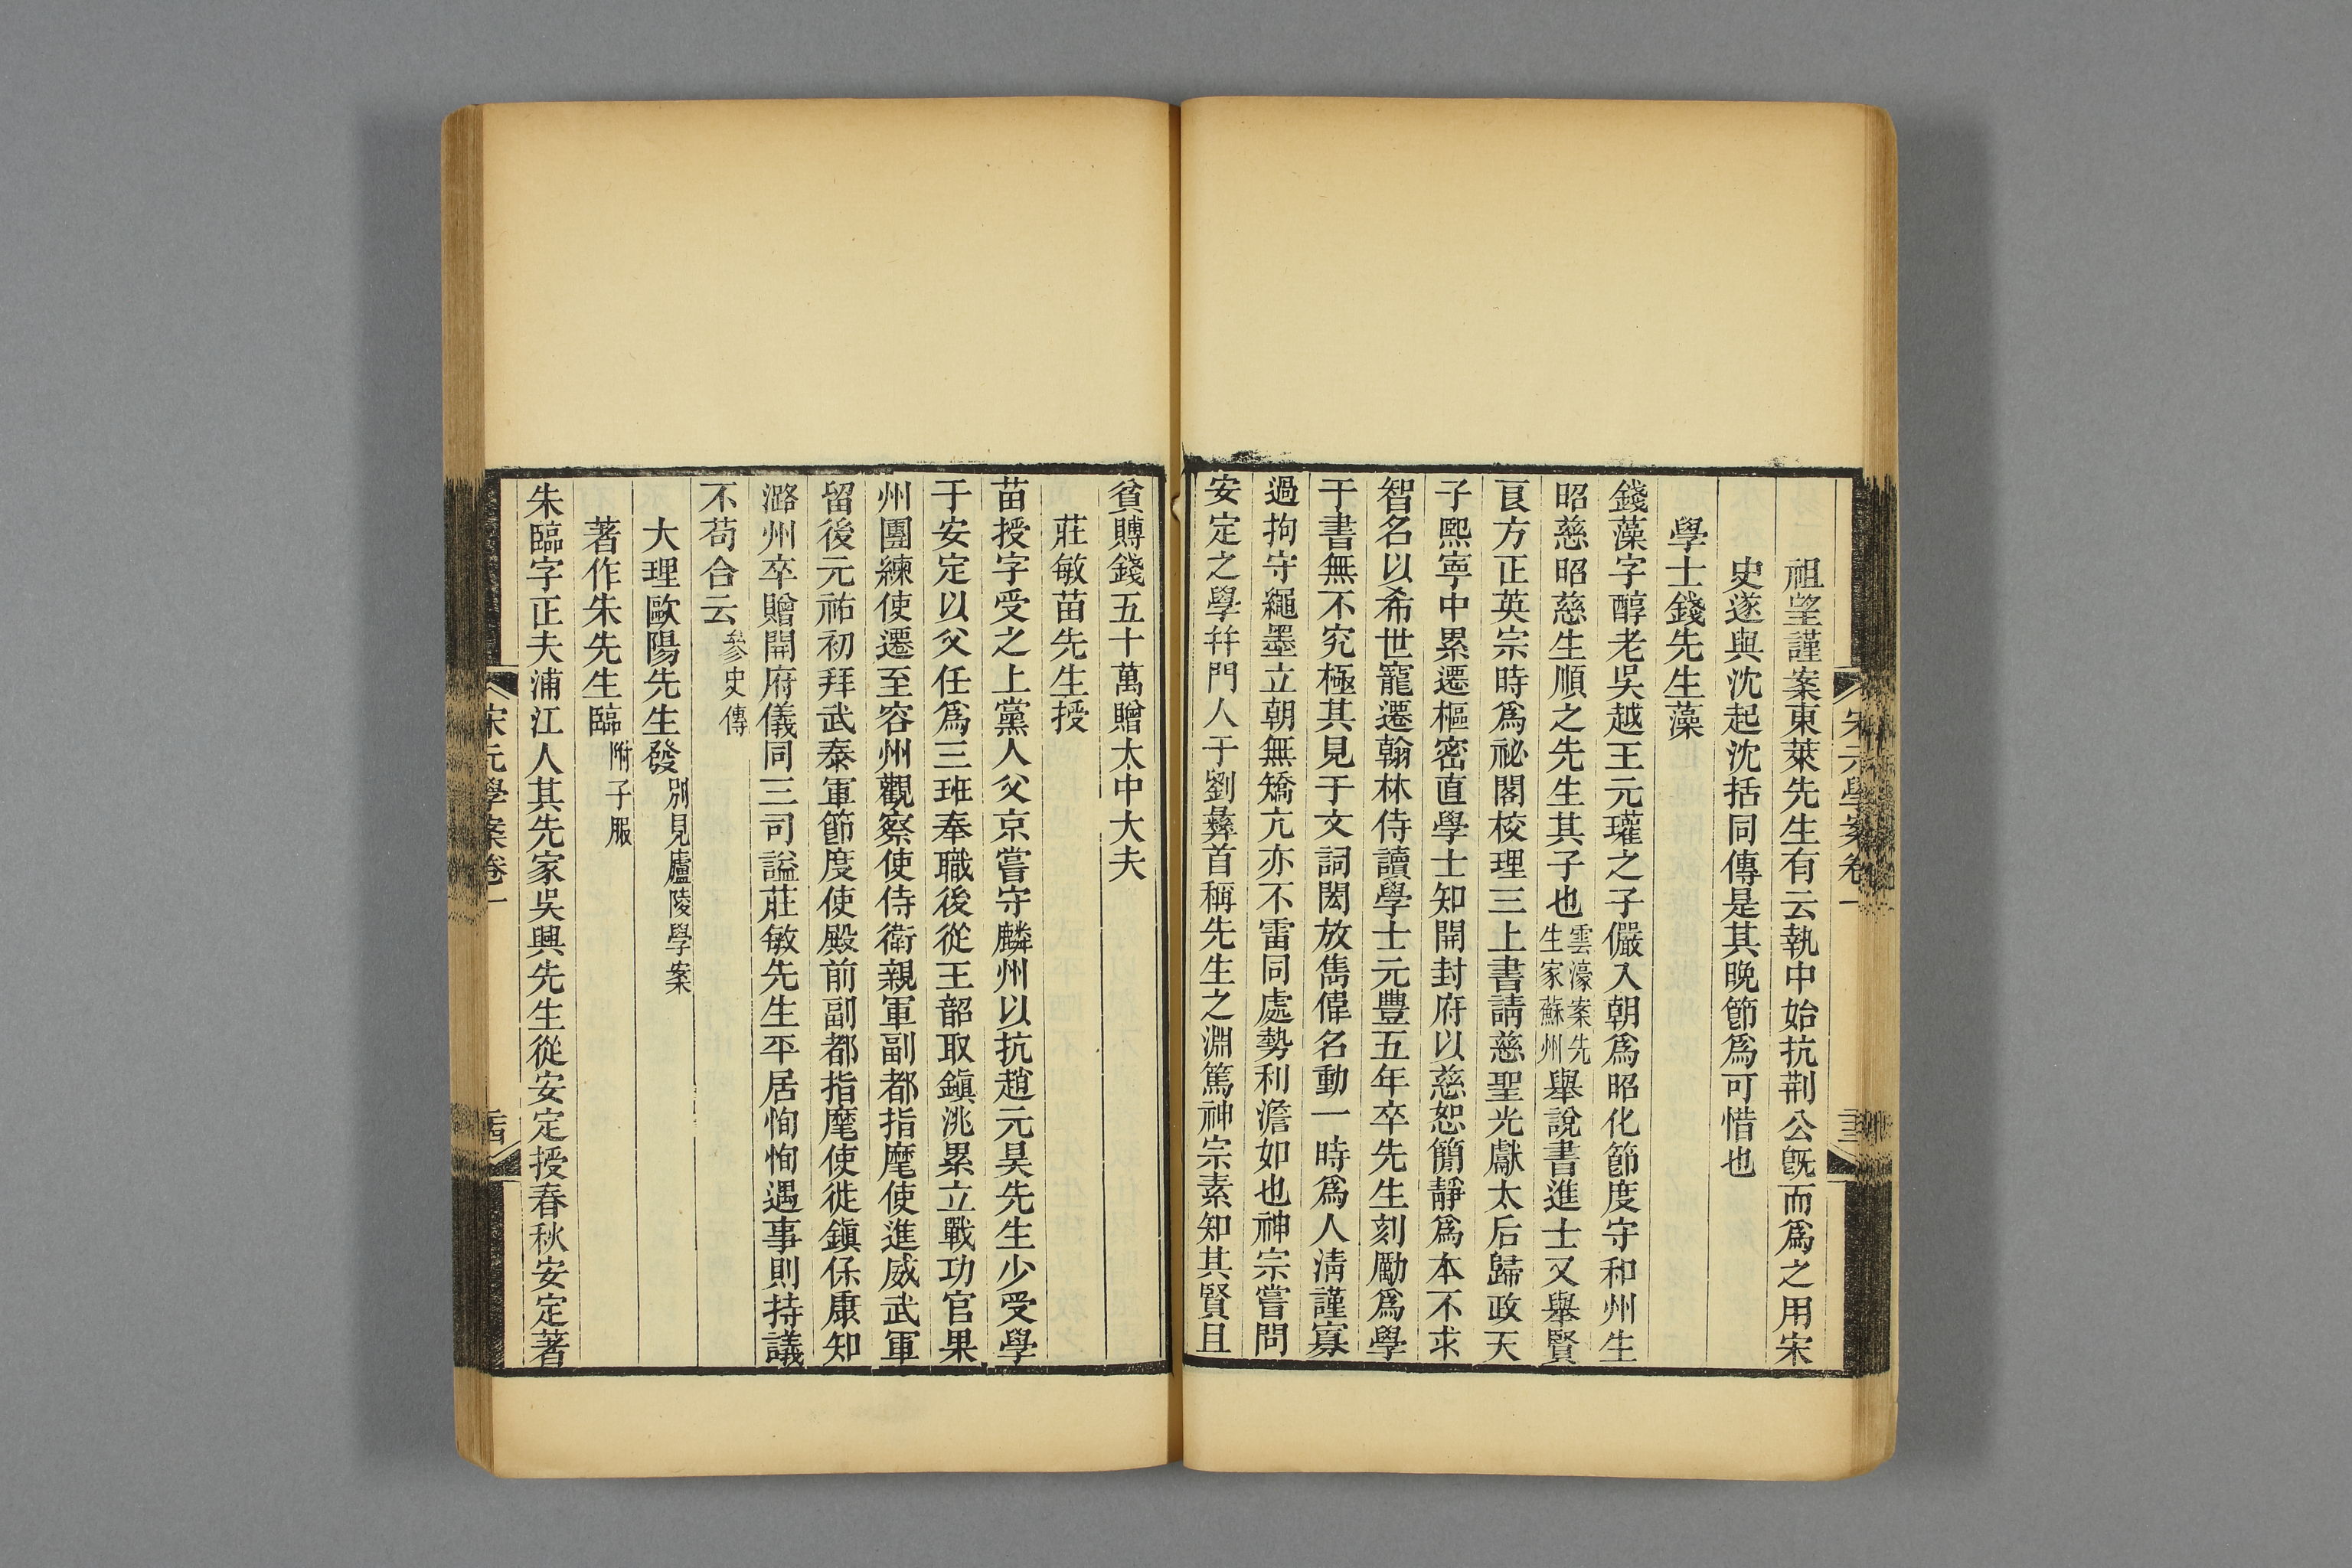 祖望謹案東萊先生有云執中始抗荆公旣而爲之用宋
史遂與沈起沈括同傳是其晚節爲可惜也
學士錢先生藻
錢藻字醇老吳越王元瓘之子儼入朝爲昭化節度守和州生
昭慈昭慈生順之先生其子也雲濠案先生家蘇州舉說書進士又舉賢
良方正英宗時爲祕閣校理三上書請慈聖光獻太后歸政天
子熙寧中累遷樞密直學士知開封府以慈恕簡靜爲本不求
智名以希世寵遷翰林侍讀學士元豐五年卒先生刻勵爲學
于書無不究極其見于文詞閎放雋偉名動一時爲人淸謹寡
過拘守繩墨立朝無矯亢亦不雷同處勢利澹如也神宗嘗問
安定之學幷門人于劉彝首稱先生之淵篤神宗素知其賢且
宋元學案卷一
貧賻錢五十萬贈太中大夫
莊敏苗先生授
苗授字受之上黨人父京嘗守麟州以抗趙元昊先生少受學
于安定以父任爲三班奉職後從王韶取鎭洮累立戰功官果
州團練使遷至容州觀察使侍衛親軍副都指麾使進威武軍
留後元祐初拜武泰軍節度使殿前副都指麾使徙鎭保康知
潞州卒贈開府儀同三司謚莊敏先生平居恂恂遇事則持議
不苟合云參史傳
大理歐陽先生發別見廬陵學案
著作朱先生臨附子服
朱臨字正夫浦江人其先家吳興先生從安定授春秋安定著
宋元學案卷一